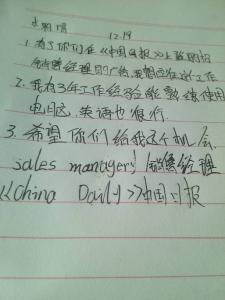 求职信
12.19
1. 看了你们在《中国日报》上登的招
销售经理的广告,我想应征这个工作
2. 我有3年工作经验能熟练使用
电脑,英语也很行.
3. 希望你们给我这个机会.
sales manager 销售经理
《China Daily》中国日报